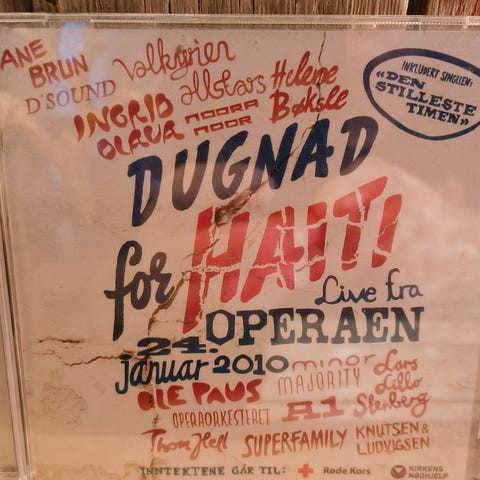 ANE
BRUN
Valkyrien
allstars
Helene
Bøksle
D'SOUND
INGRID
OLAVA
NOORA
NOOR
INKLUDERT SINGELEN:
«DEN
STILLESTE
TIMEN»
DUGNAD
for HAITI
Live fra
24. OPERAEN
januar 2010
minor
MAJORITY
Lars
Lillo
Stenberg
OLE PAUS
OPERAORKESTERET
A1
Thom Hell
SUPERFAMILY
KNUTSEN &
LUDVIGSEN
INNTEKTENE GÅR TIL:
Røde Kors
KIRKENS
NØDHJELP